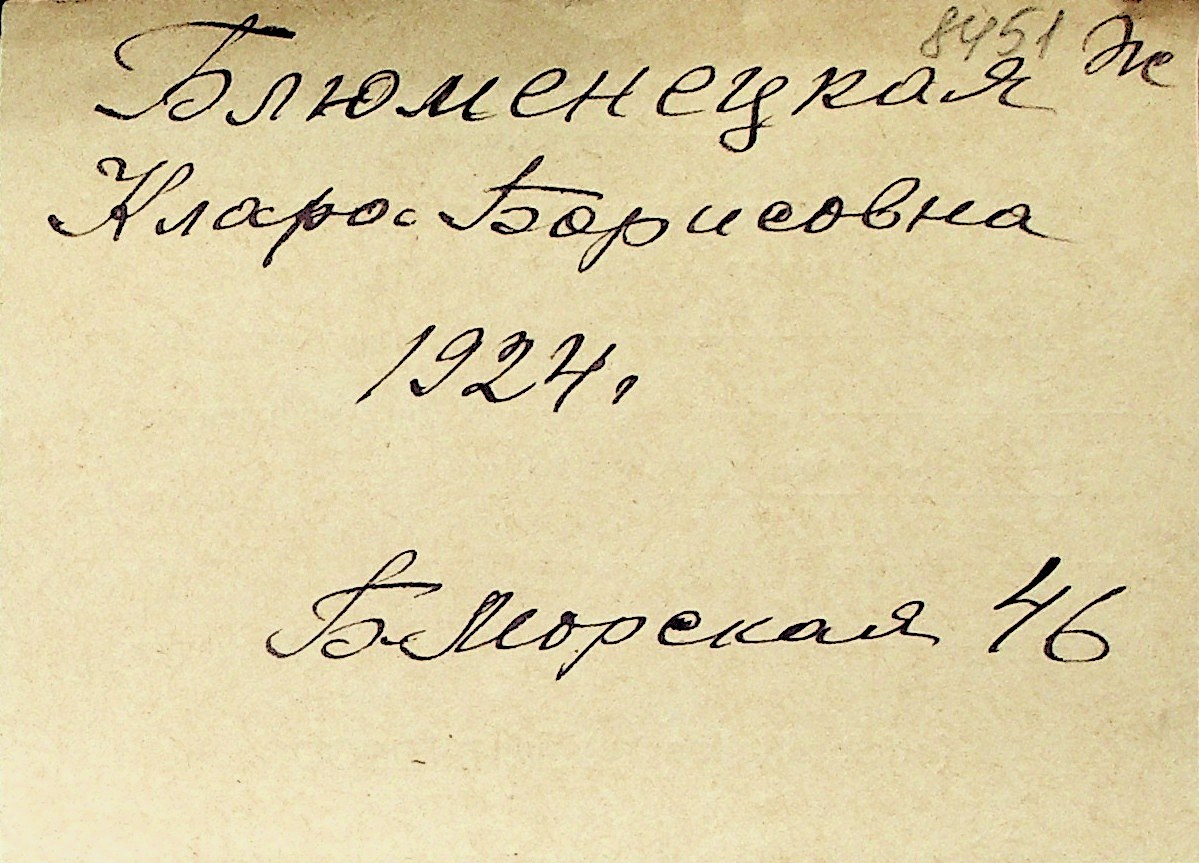 8451 Ж
Блюменецкая
Клара Борисовна
1924г
Б Морская 46